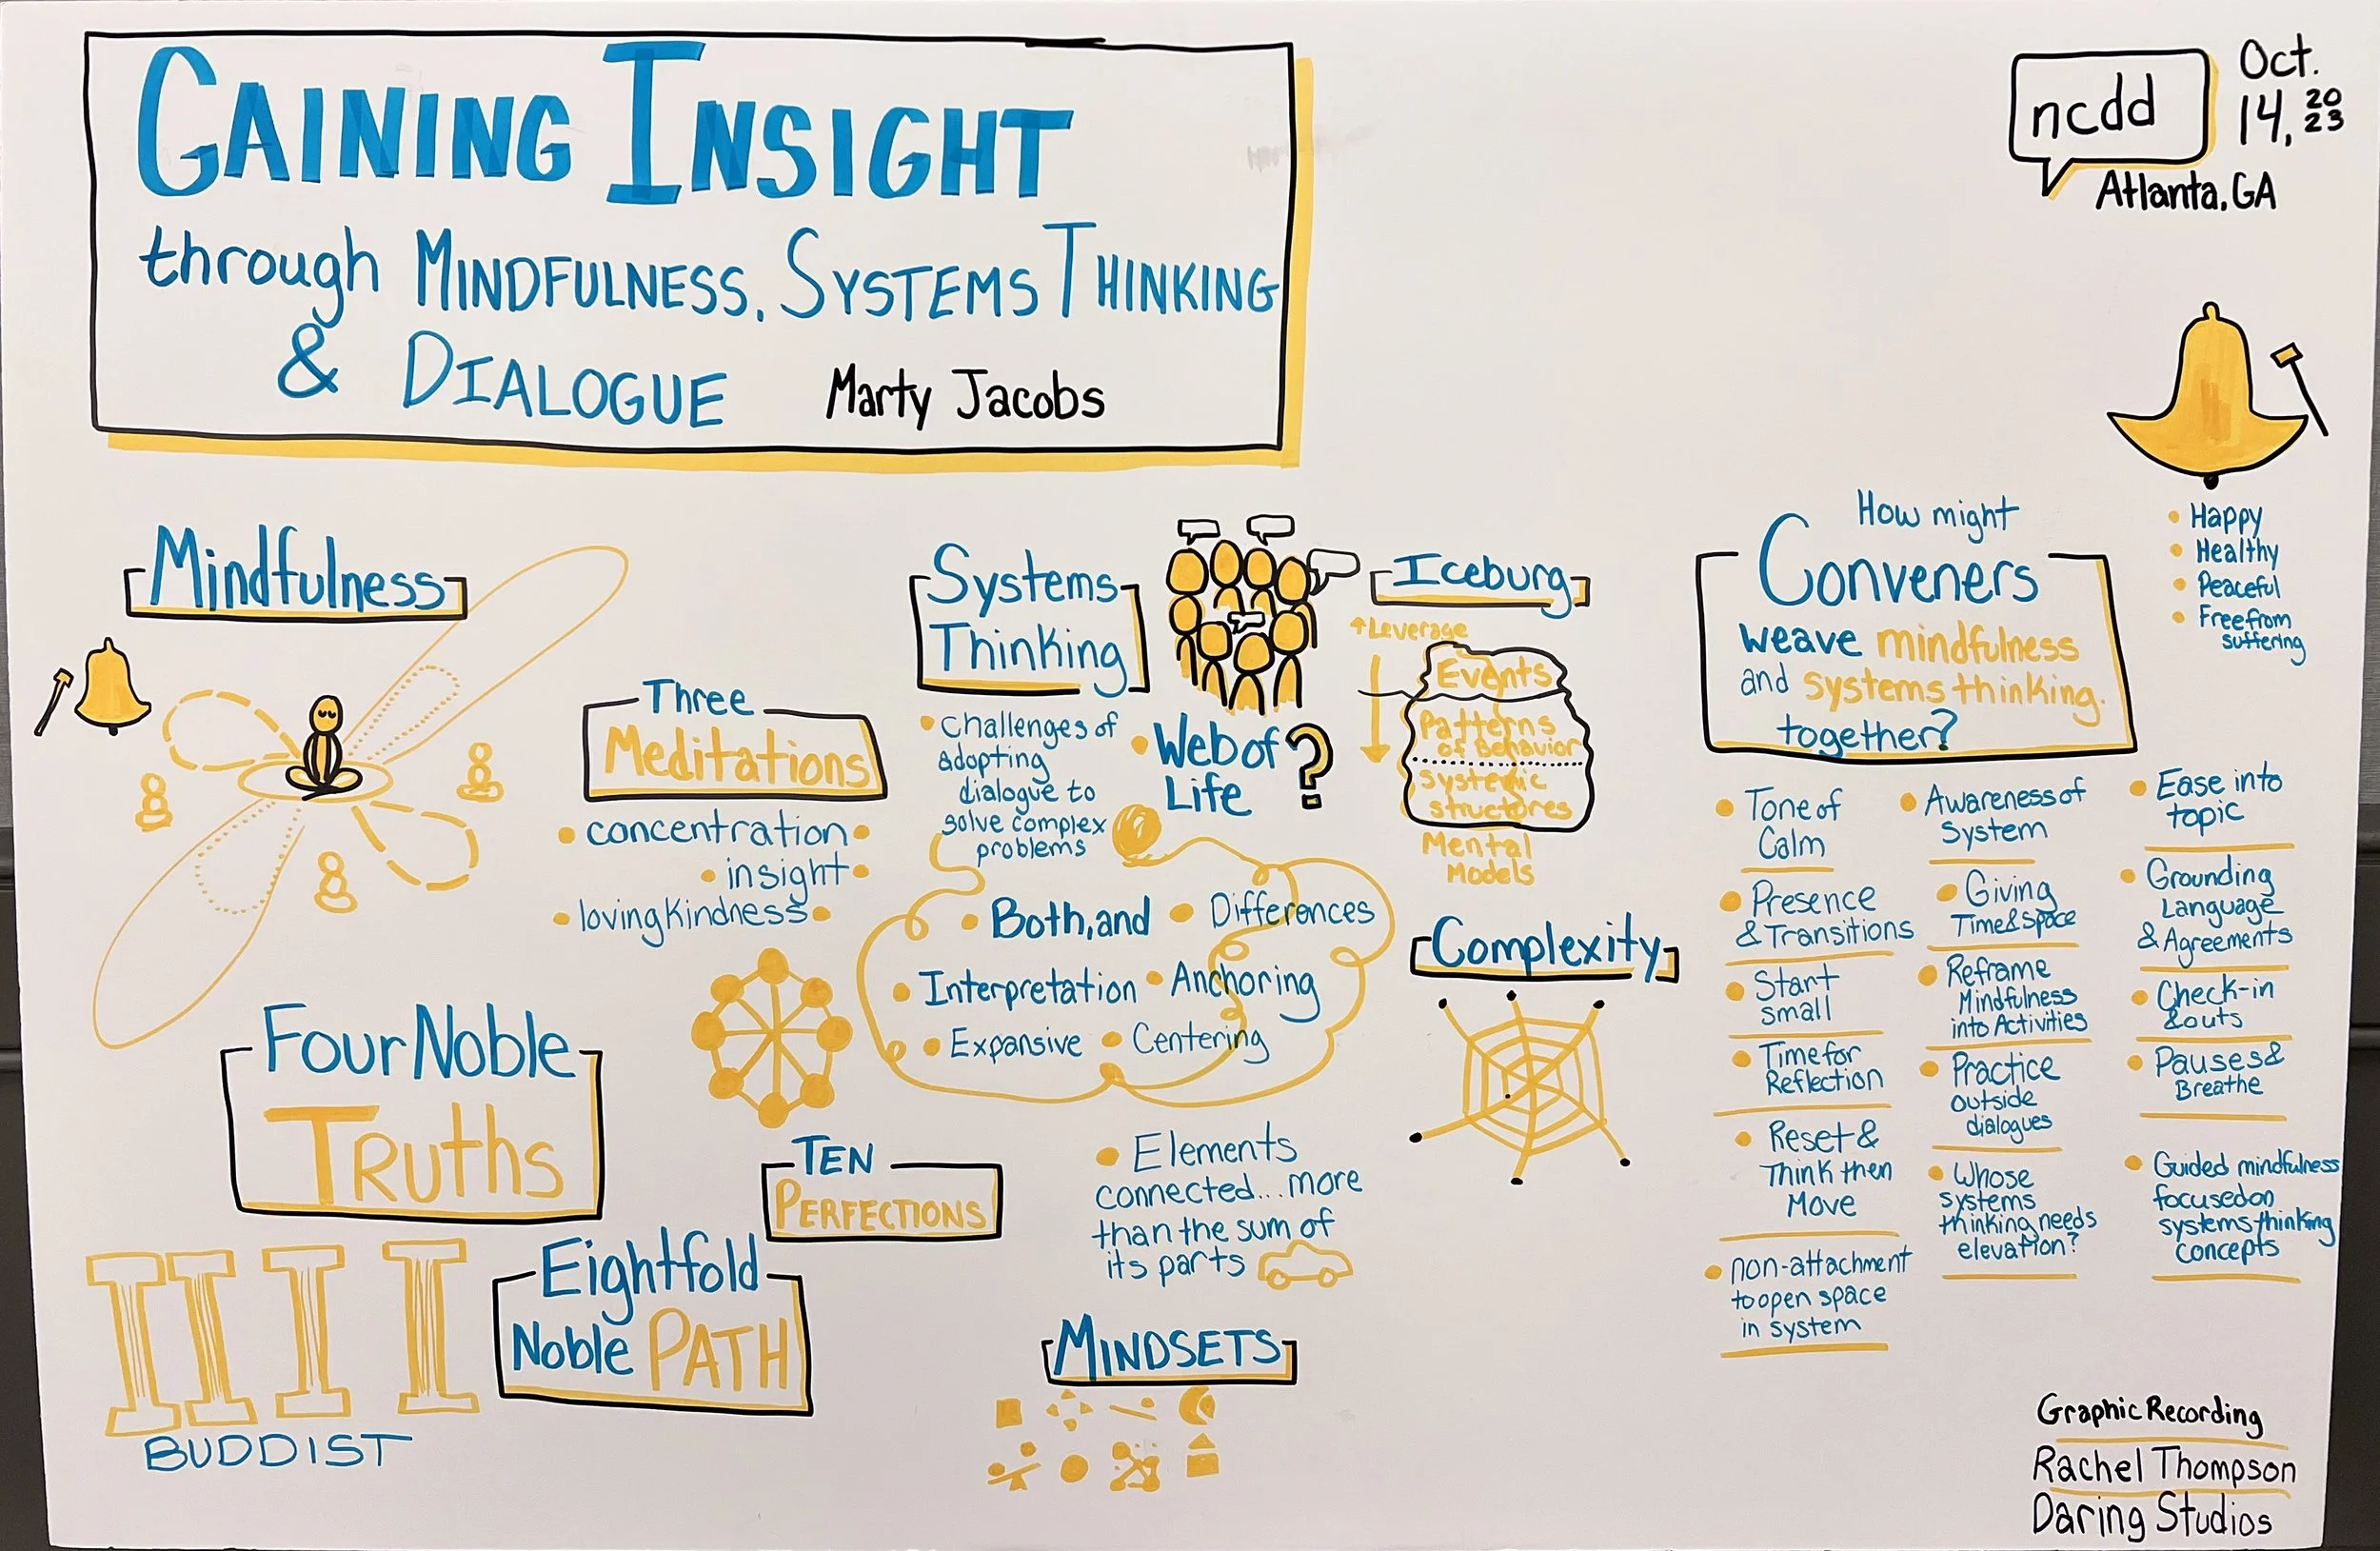 GAINING INSIGHT
through MINDFULNESS, SYSTEMS THINKING
& DIALOGUE Marty Jacobs
ncdd
Oct.
14, 2023
Atlanta, GA
Mindfulness
Three
Meditations
• concentration •
• insight •
• lovingkindness •
Four Noble
TRuths
BUDDIST
Eightfold
Noble PATH
TEN
PERFECTIONS
Systems
Thinking
• Challenges of
adopting
dialogue to
solve complex
problems
• Web of
Life ?
• Both, and • Differences
• Interpretation • Anchoring
• Expansive • Centering
• Elements
connected... more
than the sum of
its parts
MINDSETS
Iceburg
↑ Leverage
Events
Patterns
of Behavior
Systemic
structores
Mental
Models
Complexity
How might
Conveners
weave mindfulness
and systems thinking.
together?
• Happy
• Healthy
• Peaceful
• Free from
suffering
• Tone of
Calm
• Presence
& Transitions
• Start
small
• Time for
Reflection
• Reset &
Think then
Move
• non-attachment
to open space
in system
• Awareness of
System
• Giving
Time & Space
• Reframe
Mindfulness
into Activities
• Practice
outside
dialogues
• Whose
systems
thinking needs
elevation?
• Ease into
topic
• Grounding
Language
& Agreements
• Check-in
& outs
• Pauses &
Breathe
• Guided mindfulness
focused on
systems thinking
concepts
Graphic Recording
Rachel Thompson
Daring Studios